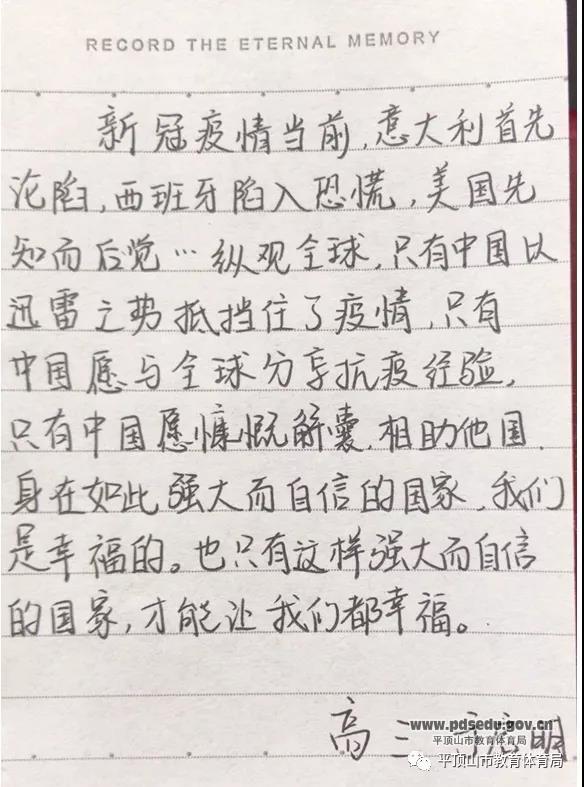 RECORD THE ETERNAL MEMORY
新冠疫情当前，意大利首先
沦陷，西班牙陷入恐慌，美国先
知而后觉…纵观全球，只有中国以
迅雷之势抵挡住了疫情，只有
中国愿与全球分享抗疫经验，
只有中国愿慷慨解囊，相助他国．
身在如此强大而自信的国家，我们
是幸福的。也只有这样强大而自信
的国家，才能让我们都幸福。
高三 明
www.pdsedu.gov.cn
平顶山市教育体育局
平顶山市教育体育局